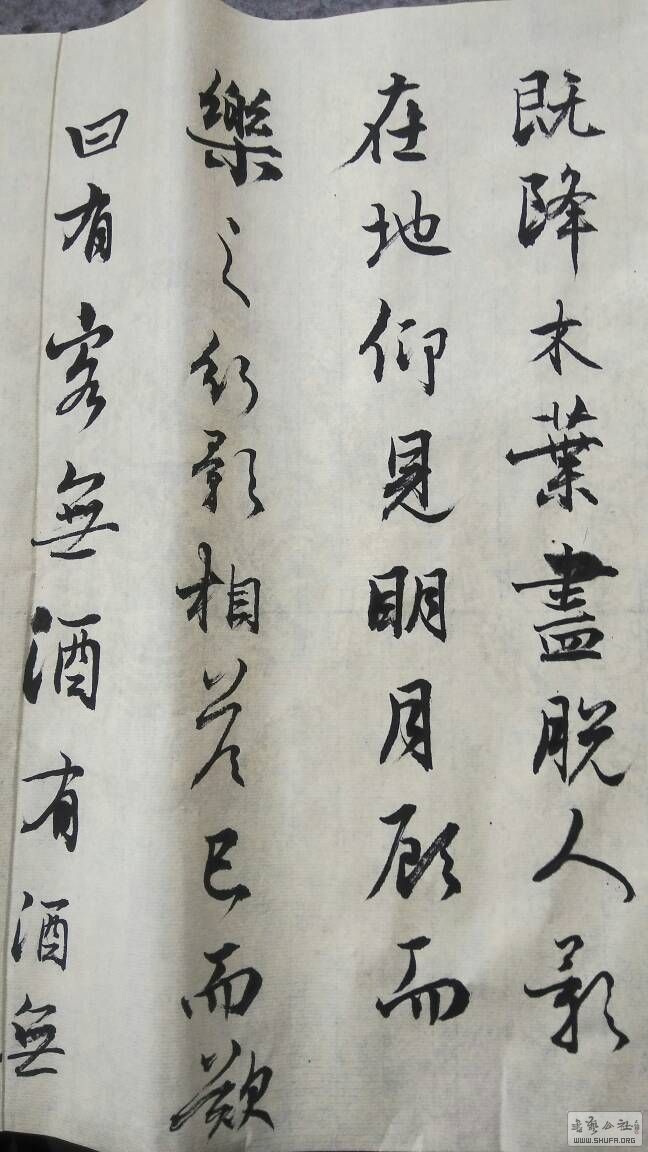 既降木葉盡脫人影
在地仰見明月顧而
樂之行影相答已而歎
曰有客無酒有酒無
书艺公社
WWW.SHUFA.ORG